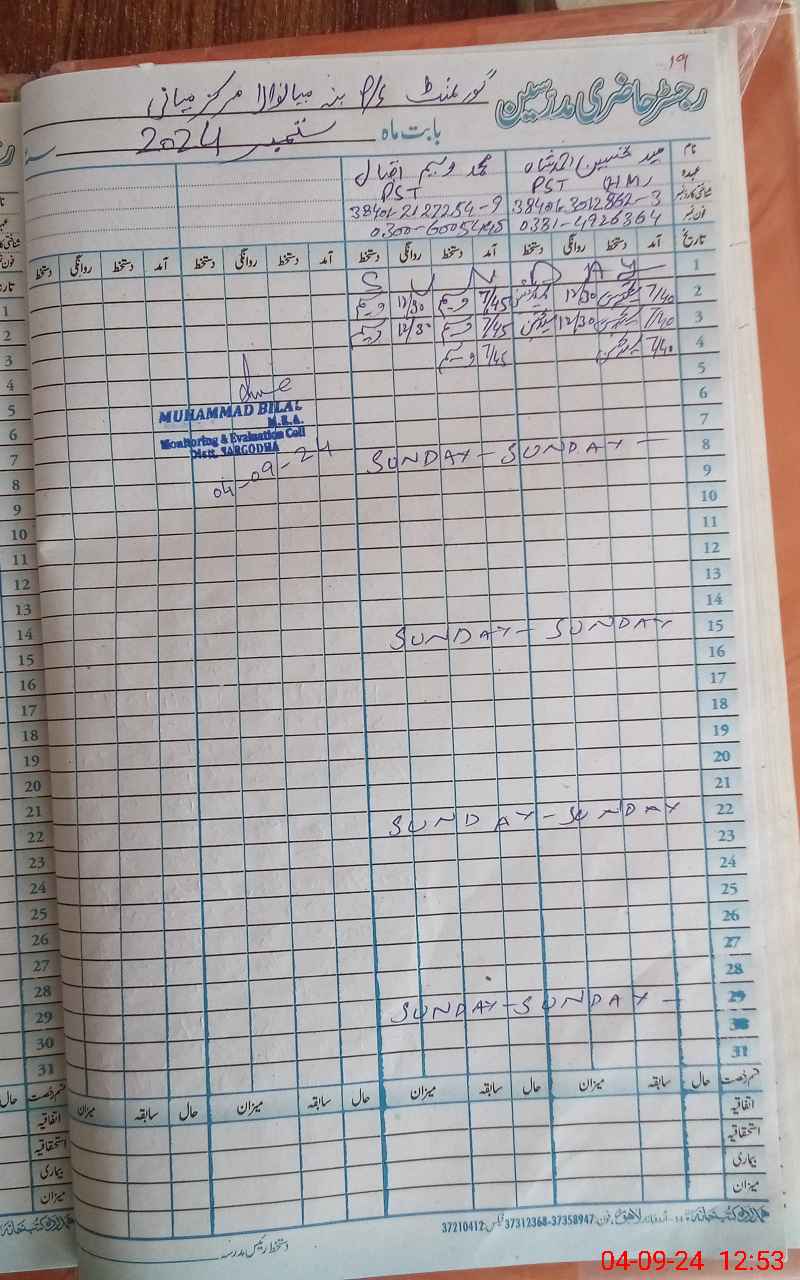 19
رجسٹر حاضری مدرسین
گورنمنٹ P/S بنہ میانوالا مرکز میانی
بابت ماہ ستمبر 2024ء
نام سید حسنین احمد شاہ محمد وسیم اقبال
عہدہ PST (HM) PST
شناختی کارڈ نمبر 38404-3012862-3 38401-2127254-9
فون نمبر
تاریخ آمد دستخط روانگی دستخط آمد دستخط روانگی دستخط آمد دستخط روانگی دستخط آمد دستخط روانگی دستخط
1 SUNDAY
2 7/40 12/30 7/45 12/30 وسیم
3 7/40 12/30 7/45 وسیم 12/30 وسیم
4 7/40 7/45 وسیم
5
MUHAMMAD BILAL
M.E.A.
6
Monitoring & Evaluation Cell
Distt. SARGODHA
7
04-09-24
8 SUNDAY - SUNDAY -
9
10
11
12
13
14
15 SUNDAY - SUNDAY
16
17
18
19
20
21
22 SUNDAY - SUNDAY
23
24
25
26
27
28
29 SUNDAY - SUNDAY -
30
31
قسم رخصت حال سابقہ میزان حال سابقہ میزان حال سابقہ میزان حال سابقہ میزان
اتفاقیہ
استحقاقیہ
بیماری
میزان
لاہور فون: 37312368-37358947 فیکس: 37210412
دستخط رئیس مدرسہ
04-09-24 12:53